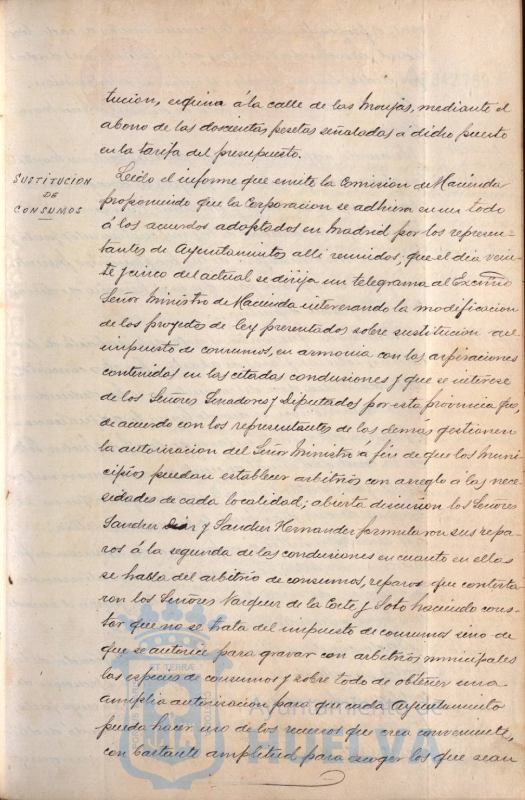 tucion, esquina á la calle de las Monjas, mediante el
abono de las doscientas pesetas señaladas á dicho puesto
en la tarifa del presupuesto.
SUSTITUCION
DE
CONSUMOS
Leido el informe que emite la Comision de Hacienda
proponiendo que la Corporacion se adhiera en un todo
á los acuerdos adoptados en Madrid por los represen-
tantes de Ayuntamientos alli reunidos; que el dia vein-
te y cinco del actual se dirija un telegrama al Excmo
Señor Ministro de Hacienda interesando la modificacion
de los proyectos de ley presentados sobre sustitucion del
impuesto de consumos, en armonia con las aspiraciones
contenidas en las citadas conclusiones y que se interese
de los Señores Senadores y Diputados por esta provincia que,
de acuerdo con los representantes de las demas, gestionen
la autorizacion del Señor Ministro á fin de que los Muni-
cipios puedan establecer arbitrios con arreglo á las nece-
sidades de cada localidad; abierta discusion los Señores
Sanchez Diaz y Sanchez Hernandez formularon sus repa-
ros á la segunda de las conclusiones en cuanto en ellas
se habla del arbitrio de consumos, reparos que contesta-
ron los Señores Vazquez de la Corte y Soto haciendo cons-
tar que no se trata del impuesto de consumos sino de
que se autorice para gravar con arbitrios municipales
las especies de consumos y sobre todo de obtener una
amplia autorizacion para que cada Ayuntamiento
pueda hacer uso de los recursos que crea conveniente,
con bastante amplitud para escoger los que sean
Ayuntamiento de
HUELVA